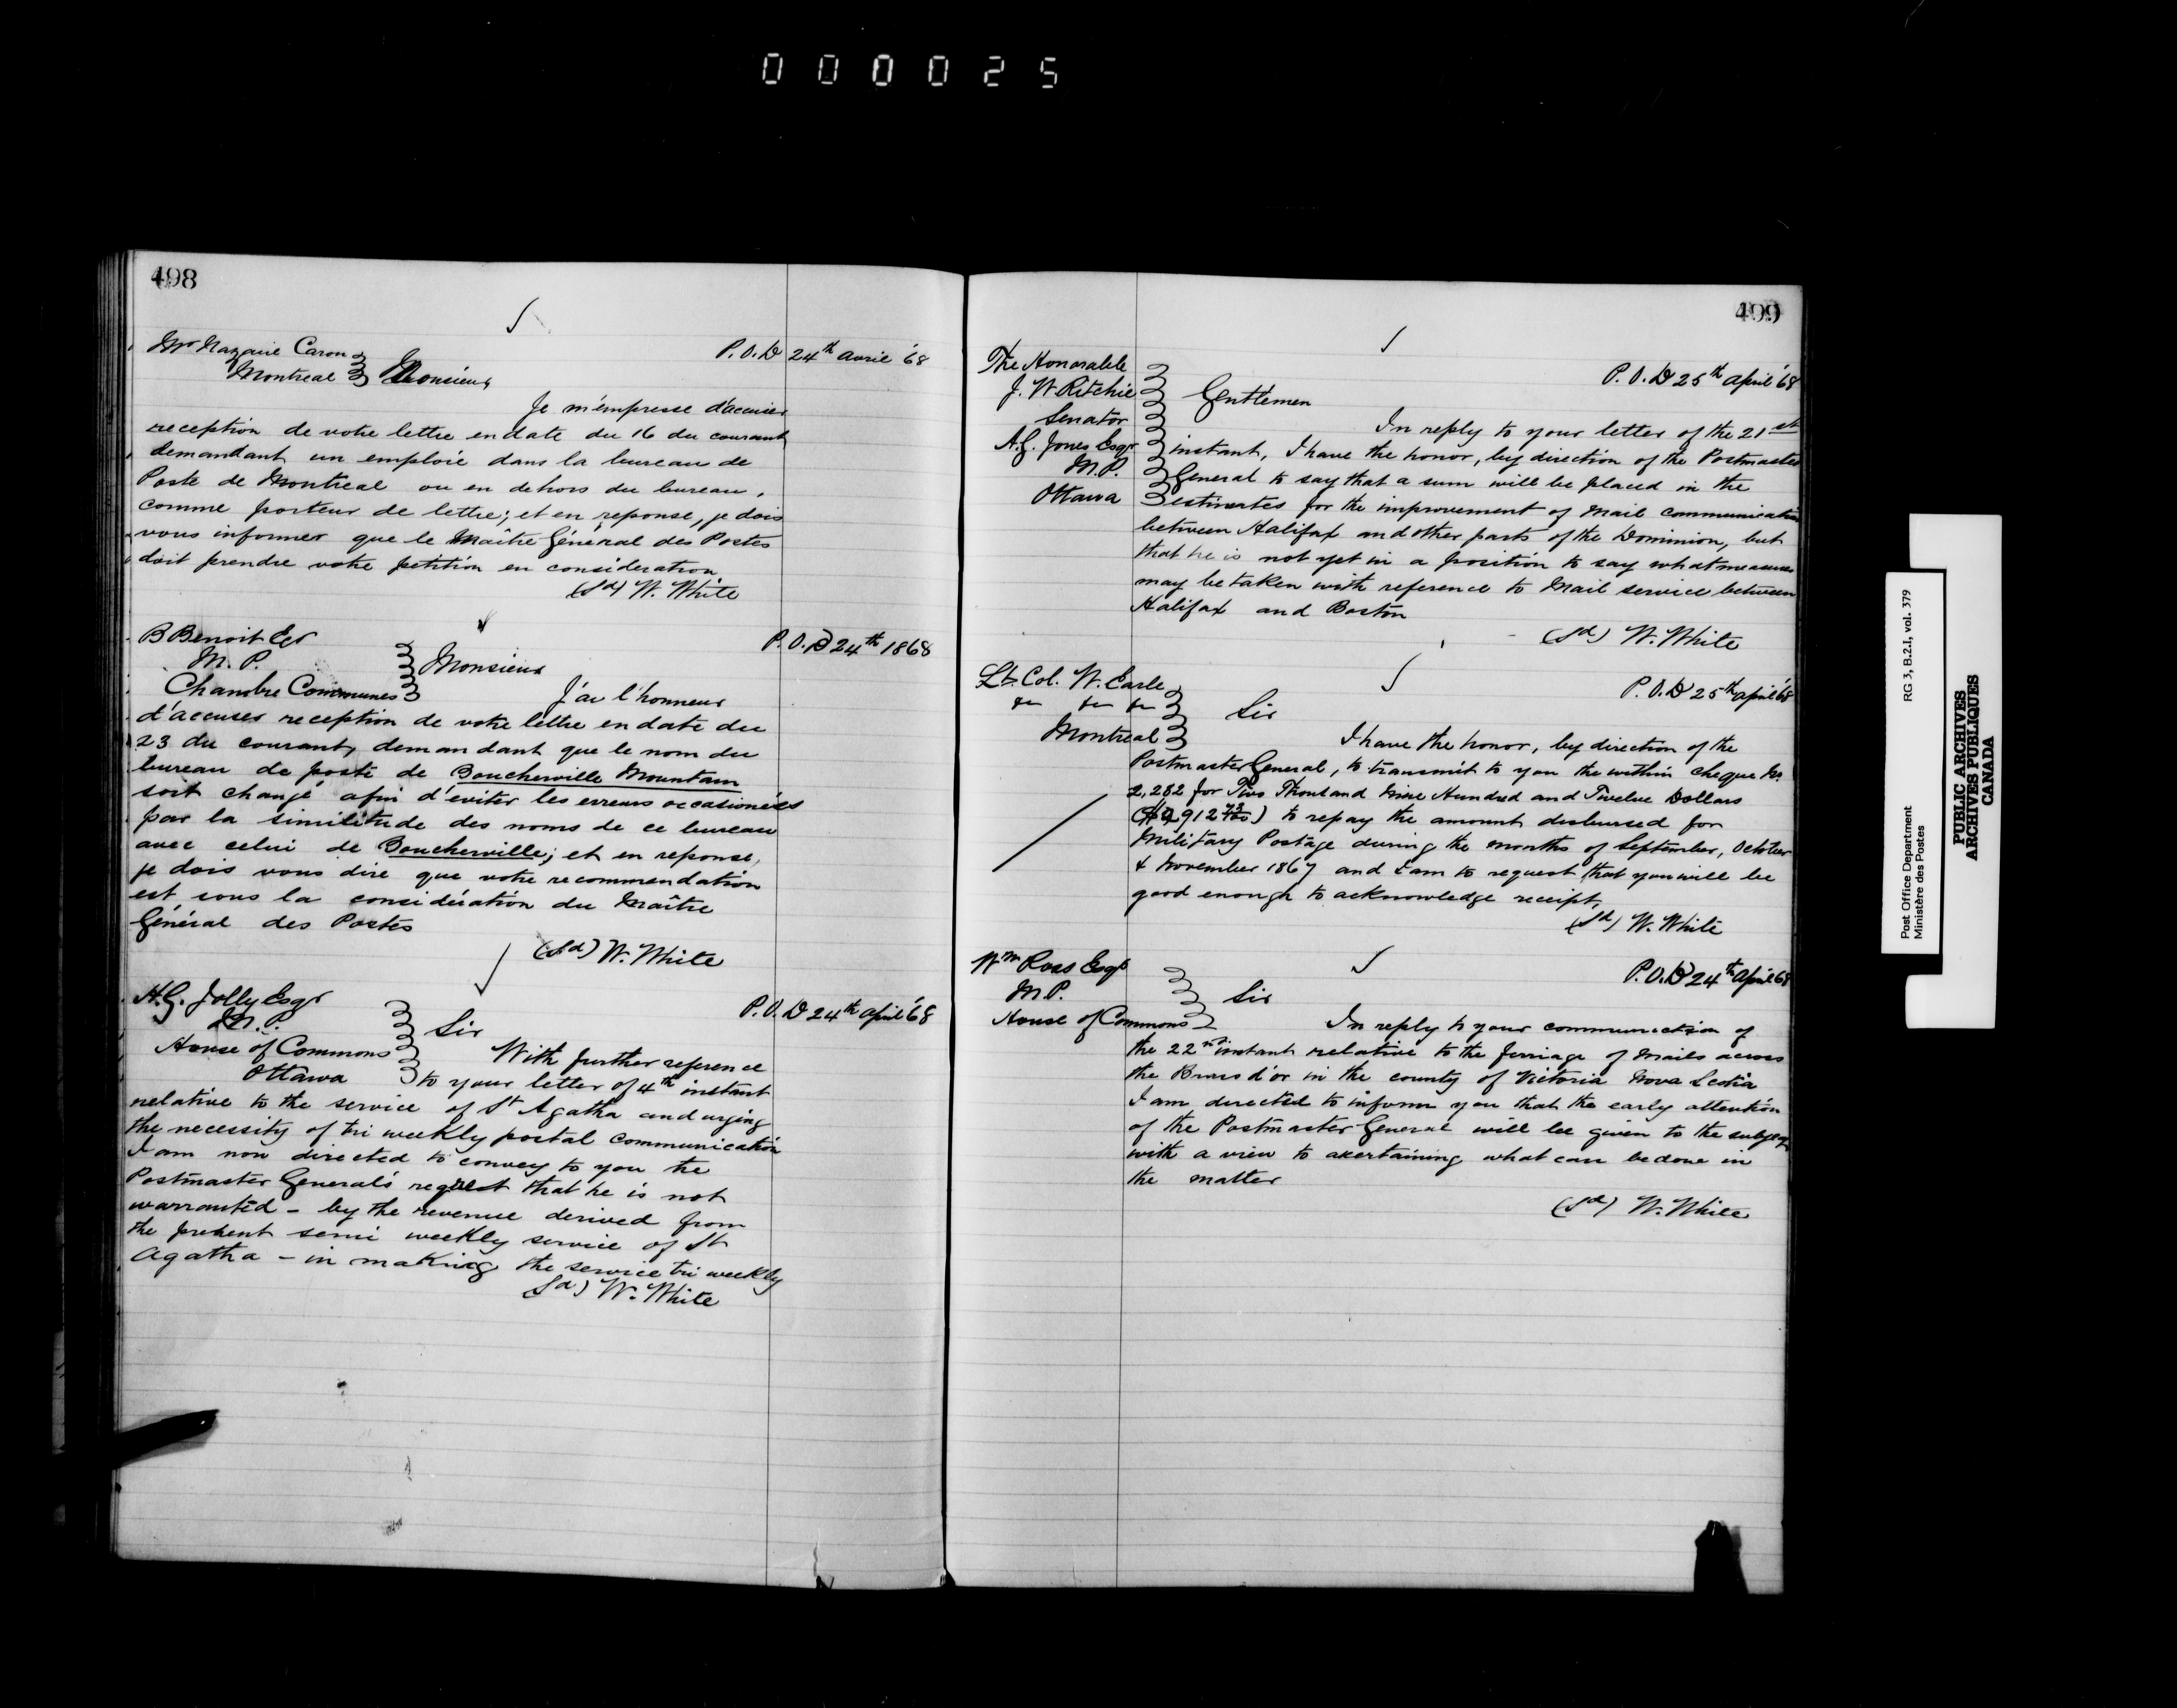 000025
498
Mr Nazaire Caron
Montreal
P.O.D 24th Avril '68
Monsieur,
Je m'empresse d'accuser
reception de votre lettre en date du 16 du courant
demandant un emploie dans la bureau de
Poste de Montreal ou en dehors du bureau,
comme porteur de lettre; et en reponse, je dois
vous informer que le Maître Général des Postes
doit prendre votre pétition en consideration
(Sd) W. White
B Benoit Esr
M.P.
Chambre Communes
P.O.D 24th 1868
Monsieur
J'ai l'honneur
d'accuser reception de votre lettre en date du
23 du courant, demandant que le nom du
bureau de poste de Boucherville Mountain
soit changé afin d'éviter les erreurs occasionées
par la similitude des noms de ce bureau
avec celui de Boucherville; et en reponse,
je dois vous dire que votre recommendation
est sous la considération du Maître
Général des Postes
(Sd) W. White
H.G. Jolly Esqr
M.P.
House of Commons
Ottawa
P.O.D 24th April '68
Sir
With further reference
to your letter of 4th instant
relative to the service of St Agatha and urging
the necessity of tri weekly postal communication
I am now directed to convey to you the
Postmaster General's regret that he is not
warranted - by the revenue derived from
the present semi weekly service of St
Agatha - in making the service tri weekly
(Sd) W. White
499
The Honorable
J. W. Ritchie
Senator
A.G. Jones Esqr
M.P.
Ottawa
P.O.D 25th April '68
Gentlemen
In reply to your letter of the 21st
instant, I have the honor, by direction of the Postmaster
General to say that a sum will be placed in the
estimates for the improvement of Mail communication
between Halifax and other parts of the Dominion, but
that he is not yet in a position to say what measures
may be taken with reference to Mail service between
Halifax and Boston
(Sd) W. White
Lt. Col. W. Earle
&c &c &c
Montreal
P.O.D 25th April '68
Sir
I have the honor, by direction of the
Postmaster General, to transmit to you the within cheque No
2,282 for Two Thousand Nine Hundred and Twelve Dollars
($2912 73/100) to repay the amount disbursed for
Military Postage during the months of September, October
& November 1867 and I am to request that you will be
good enough to acknowledge receipt,
(Sd) W. White
Wm Ross Esqr
M.P.
House of Commons
P.O.D 24th April 68
Sir
In reply to your communication of
the 22nd instant relative to the ferriage of Mails across
the Bras d'or in the county of Victoria Nova Scotia
I am directed to inform you that the early attention
of the Postmaster General will be given to the subject
with a view to ascertaining what can be done in
the matter
(Sd) W. White
Post Office Department RG 3, B.2.I, vol. 379
Ministère des Postes
PUBLIC ARCHIVES
ARCHIVES PUBLIQUES
CANADA